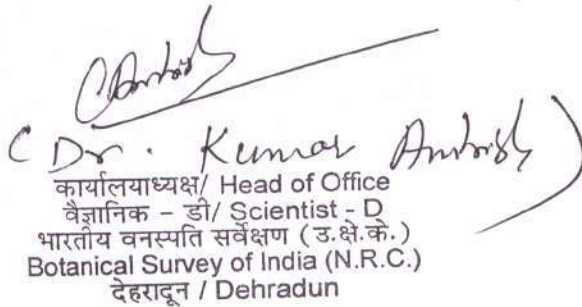 (Dr. Kumar Ambrish)
कार्यालयाध्यक्ष/ Head of Office
वैज्ञानिक – डी/ Scientist - D
भारतीय वनस्पति सर्वेक्षण (उ.क्षे.के.)
Botanical Survey of India (N.R.C.)
देहरादून / Dehradun